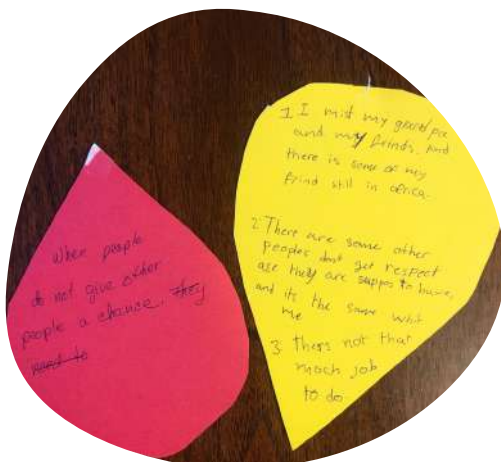 When people
do not give other
people a chance. they
need to
1 I mist my
and my frinds. and
there is some of my
frind still in africa.
2 There are some other
peoples dont get respect
ase they are suppos to have,
and its the same whit
me
3 thers not that
much job
to do